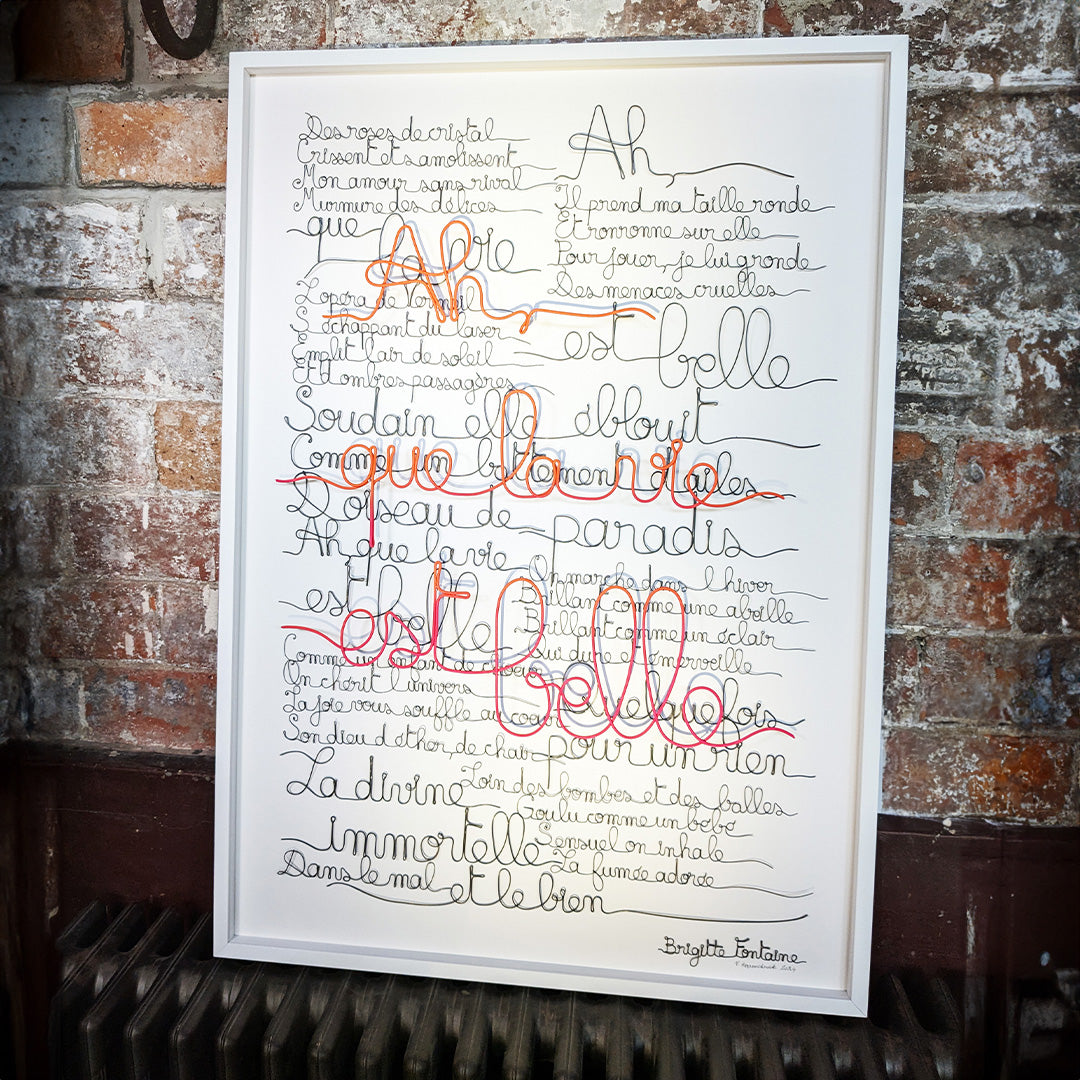 Des roses de cristal
Crissent et s'amolissent
Mon amour sans rival
Murmure des délices
Ah,
que la vie
Il prend ma taille ronde
Et ronronne sur elle
Pour jouer, je lui gronde
Des menaces cruelles
est belle
L'opéra de Vermeil
S'échappant du laser
Emplit l'air de soleil
Et d'ombres passagères
Soudain elle éblouit
Comme un battement d'ailes
D'oiseau de paradis
Ah que la vie
est belle
On marche dans l'hiver
Brillant comme une abeille
Brillant comme un éclair
Qui dure et émerveille
Comme un enfant de choeur
On chérit l'univers
La joie vous souffle au coeur
Son dieu d'éther, de chair
Quelquefois
pour un rien
La divine
immortelle
Loin des bombes et des balles
Goulu comme un bébé
Sensuel on inhale
La fumée adorée
Dans le mal et le bien
Ah,
que la vie
est belle
Brigitte Fontaine